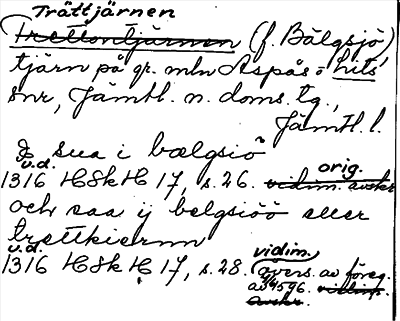 Trättjärnen
Trettontjärnen (f. Bälgsjö)
tjärn på gr. mln Aspås o. Lits
snr, Jämtl. n. doms. tg.,
Jämtl. l.
J sua i bælgsiö
u.d. orig.
1316 HSkH 17, s. 26. vidim. avskr
och saa ij belgsiöö eller
trettkiernn
u.d. vidim.
1316 HSkH 17, s. 28. övers. av föreg.
av 1596. vidim.
avskr.